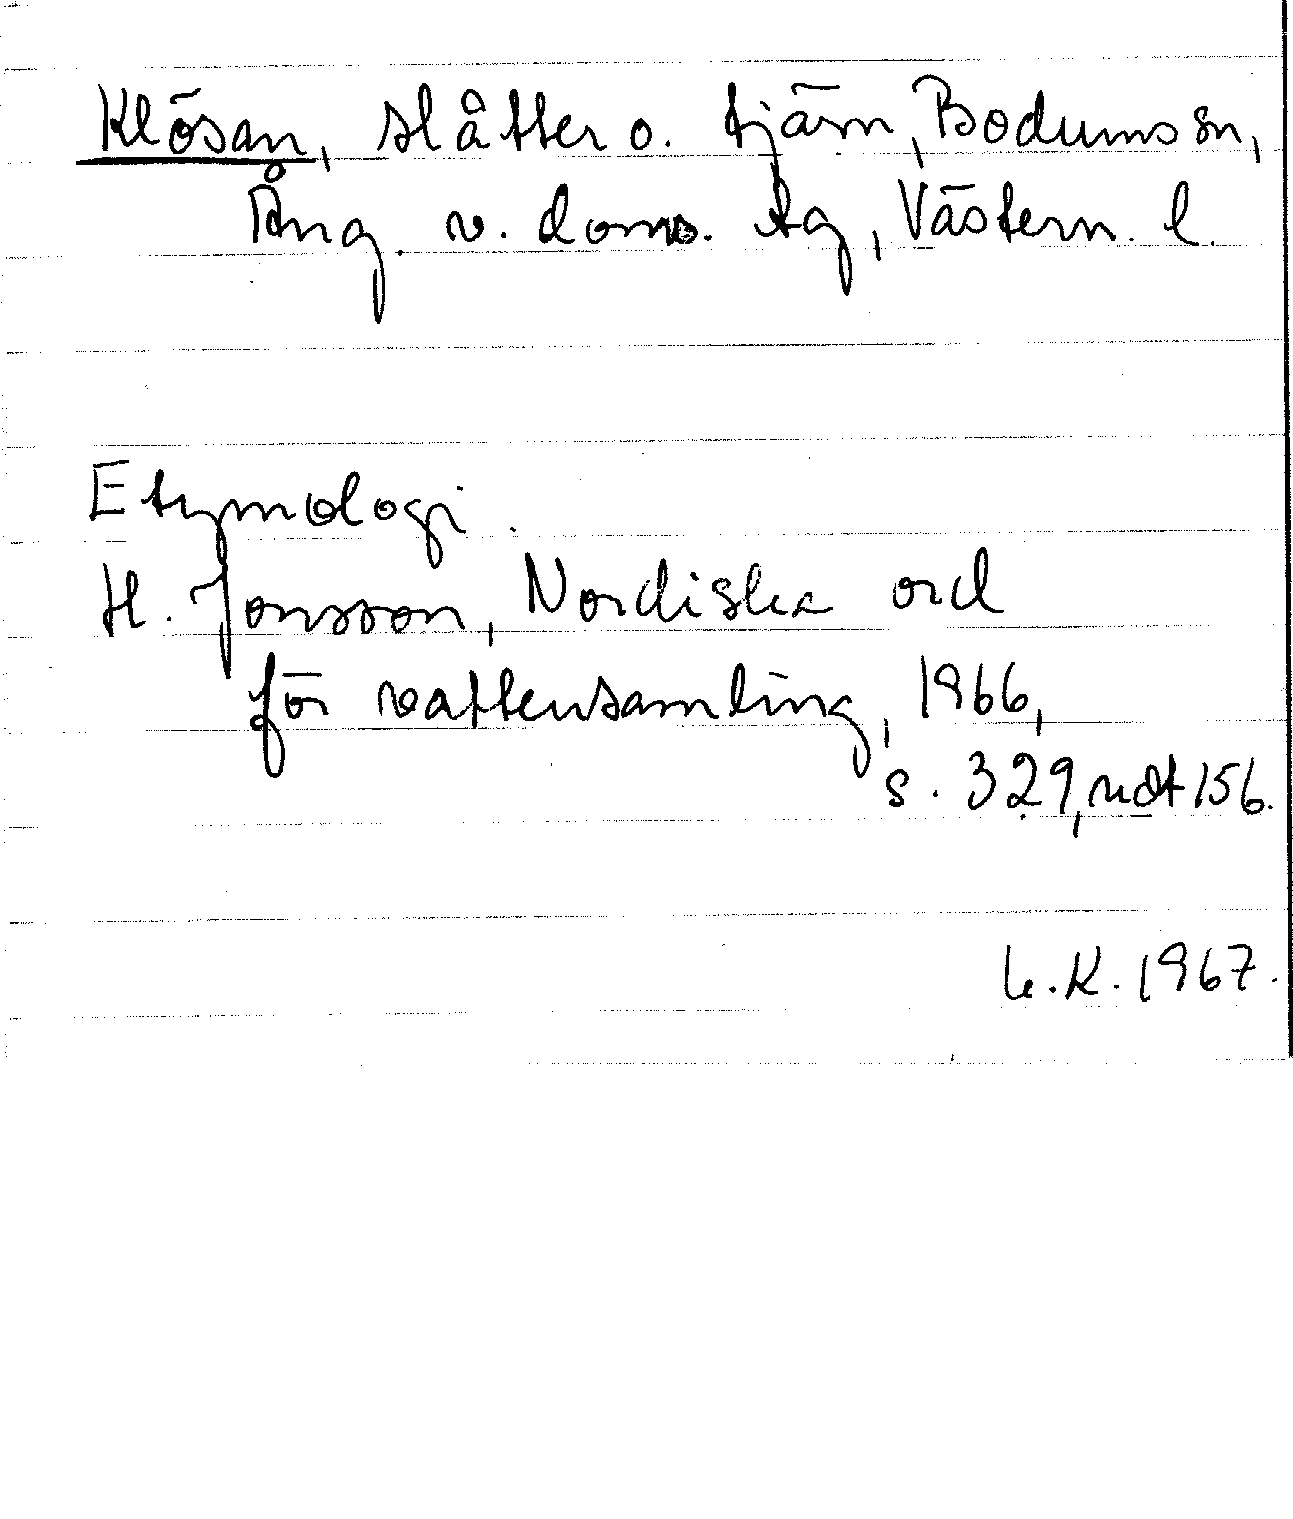 Klösan, slåtter o. tjärn, Bodums sn,
Ång. v. doms. lag, Västern. l.
Etymologi.
H. Jonsson, Nordiska ord
för vattensamling, 1966,
s. 329, not 156.
L.K. 1967.